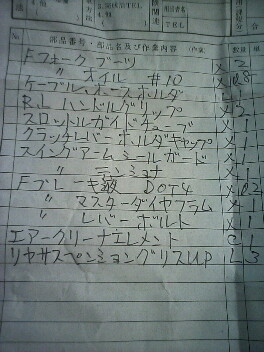 TEL
TEL
No 部品番号・部品名及び作業内容 (作業) 数量
Fフォーク ブーツ × 2
〃 オイル #10
ケーブル、ホースホルダ × 1
R.L ハンドルグリップ × 2
スロットルガイドチューブ × 1
クラッチレバーホルダキャップ × 1
スイングアームシールガード × 1
〃 テンショナ × 1
Fブレーキ液 DOT4
〃 マスターダイヤフラム × 1
〃 レバーボルト × 1
エアークリーナエレメント C L
リヤサスペンショングリスUP L 3